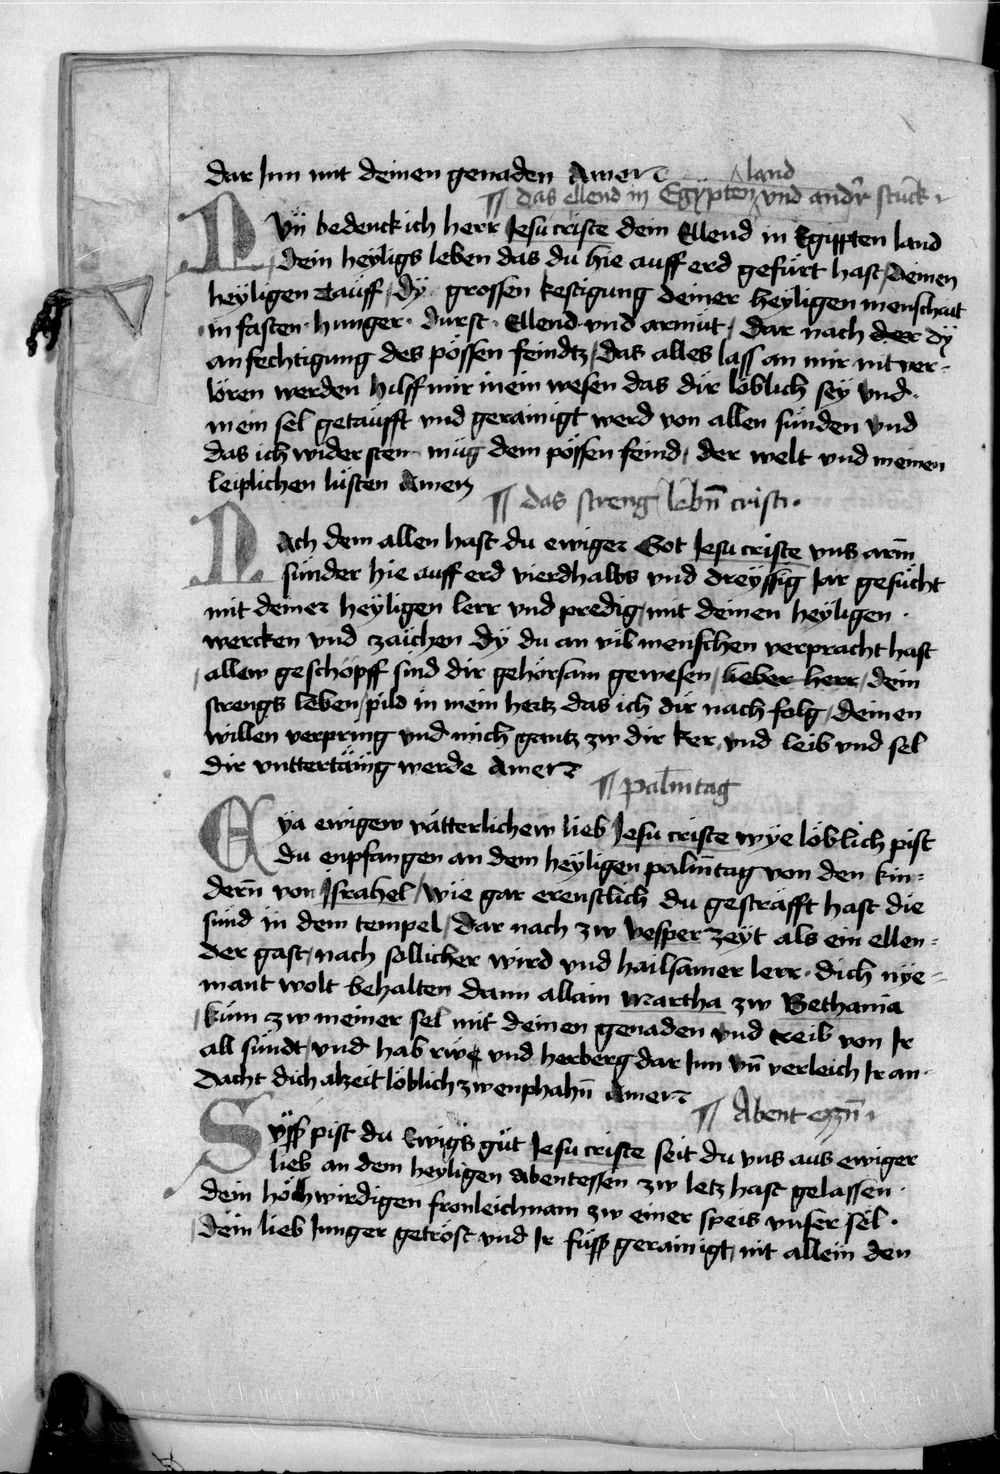 dar Inn mit deinen genaden Amen
¶ das ellend in Egÿpten land vnd andr stuck
Nvn bedenck ich herr Jesu criste dein Ellend in Egippten land
dein heyligs leben das du hie auff erd gefürt hast / deinen
heyligen Tauff / dÿ grossen kestigung deiner heyligen menschait
in fasten · hunger · durst · Ellend vnd armüt / dar nach der dÿ
anfechtigung des pössen feindtz / das alles lass an mir nit ver-
lören werden hilff mir mein wesen das dir löblich seÿ vnd
mein sel getaufft vnd gerainigt werd von allen sünden vnd
das ich wider sten müg dem pössen feind / der welt vnd meinen
leiplichen lüsten Amen
¶ das streng lebñ cristi ·
Nach dem allen hast du ewiger Got Jesu criste vns arm̄
sünder hie auff erd vierdhalbs vnd dreÿssig Jar gesücht
mit deiner heÿligen lerr vnd predig / mit deinen heÿligen ·
wercken vnd zaichen dÿ du an vil menschen verpracht hast
allew geschöpff sind dir gehorsam gewesen / lieber herr / dein
strengs leben / pild in mein hertz das ich dir nach folg / deinen
willen verpring vnd mich gantz zw dir ker / vnd leib vnd sel
dir vnttertänig werde Amen
¶ palm̄tag
Eya ewigew vätterlichew lieb Jesu criste wÿe löblich pist
du enpfangen an dem heÿligen palm̄tag von den kin-
dern̄ von Jsrahel / wie gar erenstlich du gestrafft hast die
sünd in dem tempel / Dar nach zw vesper zeÿt als ein ellen-
der gast / nach sollicher wird vnd hailsamer lerr · dich nÿe-
mant wolt behalten dann allain Martha zw Bethania
küm zw meiner sel mit deinen genaden vnd treib von Ir
all sündt / vnd hab rwe vnd herberg dar Inn vn̄ verleich Ir an-
dacht dich alzeit löblich zw enphahn̄ Amen
¶ Abent essn̄
Süss pist du Ewigs güt Jesu criste seit du vns aus ewiger
lieb an dem heyligen abentessen zw letz hast gelassen ·
dein hochwirdigen fronleichnam zw einer speis vnser sel ·
dein lieb Junger getröst vnd Ir füss gerainigt / nit allein den